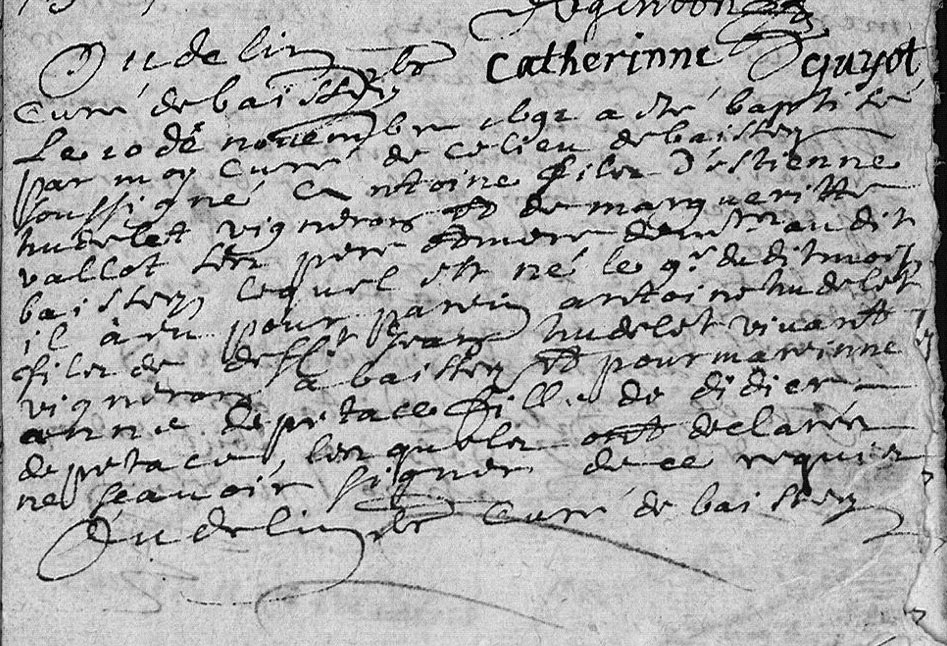 Oudelin pbr Catherinne Guyot
Curé de baissey
Le 10 de novembre 1692 a esté baptisé
par moy curé de ce lieu de baissey
soussigné Antoine filz d'Estienne
hudelet vigneron et de margueritte
vallot ses pere et mere demeurant audit
baissey lequel est né le 9e dudit mois
il à eu pour parein antoine hudelet
filz de deffunt Jean hudelet vivant
vigneron a baissey et pour mareinne
anne depetace fille de didier
depetace lesquelz ont declarés
ne sçavoir signer de ce requis
Oudelin pbr Curé de baissey